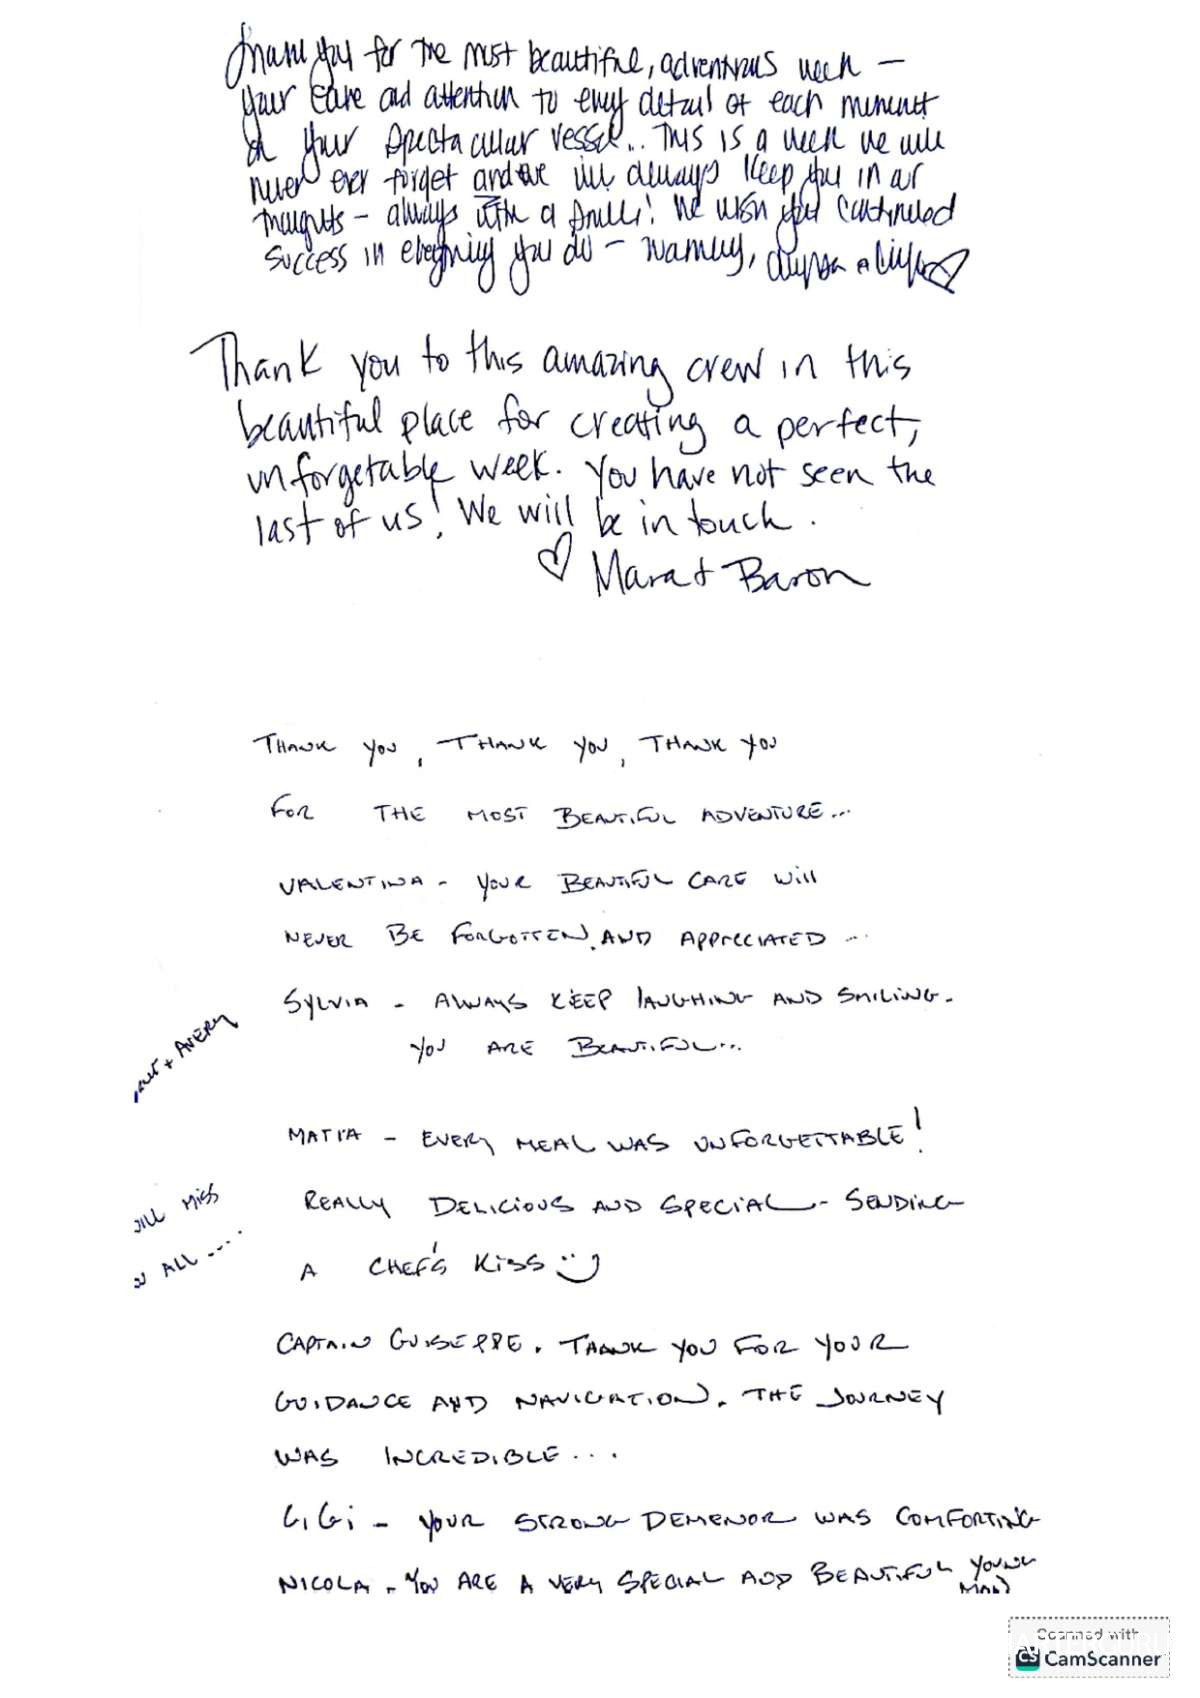 Thank you for the most beautiful, adventurous week —
your care and attention to every detail of each moment
on your spectacular vessel... This is a week we will
never ever forget and we will always keep you in our
thoughts - always with a smile! We wish you continued
success in everything you do -
Thank you to this amazing crew in this
beautiful place for creating a perfect,
unforgetable week. You have not seen the
last of us! We will be in touch.
♡ Mara + Baron
THANK YOU, THANK YOU, THANK YOU
FOR THE MOST BEAUTIFUL ADVENTURE...
VALENTINA - YOUR BEAUTIFUL CARE WILL
NEVER BE FORGOTTEN AND APPRECIATED ...
SYLVIA - ALWAYS KEEP LAUGHING AND SMILING.
YOU ARE BEAUTIFUL...
+ AVERY
MATIA - EVERY MEAL WAS UNFORGETTABLE!
REALLY DELICIOUS AND SPECIAL - SENDING
A CHEF'S KISS
MISS
ALL ....
CAPTAIN GUISEPPE. THANK YOU FOR YOUR
GUIDANCE AND NAVIGATION. THE JOURNEY
WAS INCREDIBLE...
GIGI - YOUR STRONG DEMENOR WAS COMFORTING
NICOLA - YOU ARE A VERY SPECIAL AND BEAUTIFUL YOUNG
MAN
Scanned with
CS CamScanner